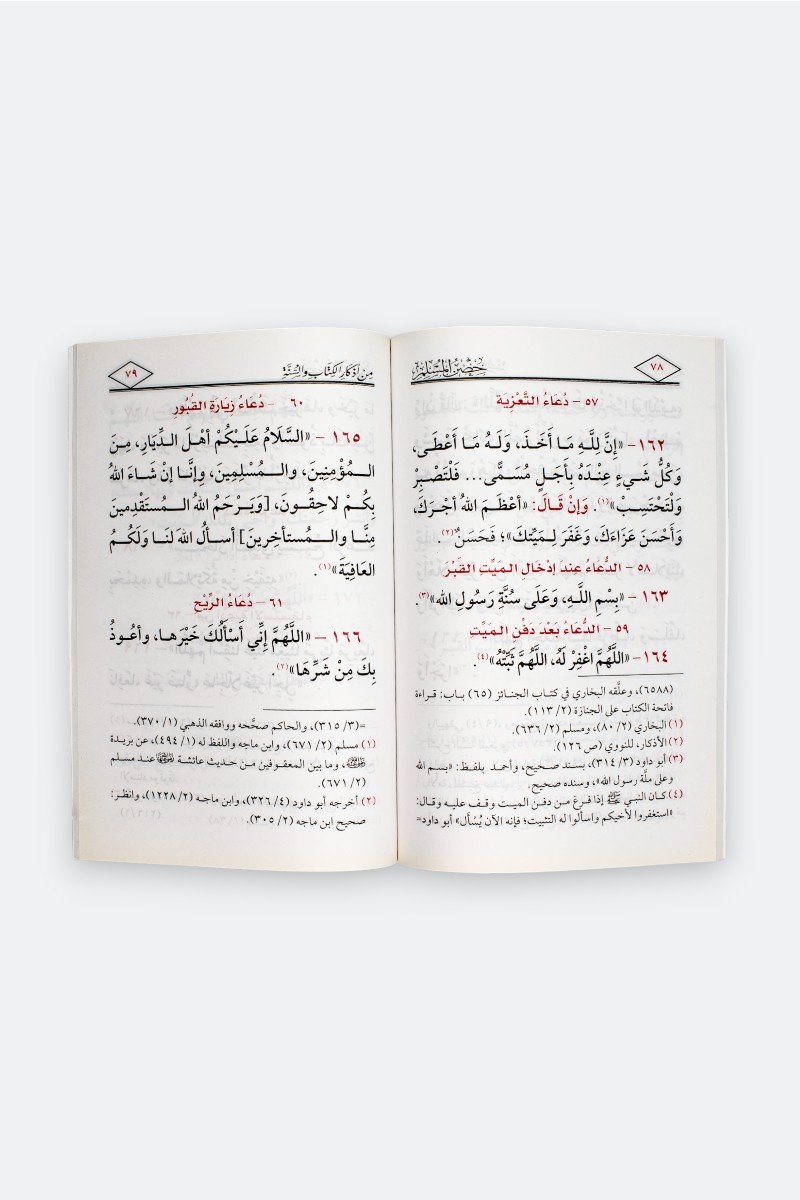 ٧٨
حصن المسلم
٥٧ - دُعَاءُ التَّعْزِيَة
١٦٢ - «إِنَّ لِلَّهِ مَا أَخَذَ، وَلَهُ مَا أَعْطَى،
وَكُلُّ شَيءٍ عِنْدَهُ بِأَجَلٍ مُسَمًّى... فَلْتَصْبِرْ
وَلْتَحْتَسِبْ»(١). وَإِنْ قَالَ: «أَعْظَمَ اللهُ أَجْرَكَ،
وَأَحْسَنَ عَزَاءَكَ، وَغَفَرَ لِمَيِّتِكَ»؛ فَحَسَنٌ(٢).
٥٨ - الدُّعَاءُ عِندَ إدْخَالِ المَيِّتِ القَبْرَ
١٦٣ - «بِسْمِ اللَّهِ، وَعَلَى سُنَّةِ رَسُولِ اللهِ»(٣).
٥٩ - الدُّعَاءُ بَعْدَ دَفْنِ المَيِّتِ
١٦٤ - «اللَّهُمَّ اغْفِرْ لَهُ، اللَّهُمَّ ثَبِّتْهُ»(٤).
(٦٥٨٨)، وعلَّقه البخاري في كتاب الجنائز (٦٥) باب: قراءة
فاتحة الكتاب على الجنازة (٢/ ١١٣).
(١) البخاري (٢/ ٨٠)، ومسلم (٢/ ٦٣٦).
(٢) الأذكار، للنووي (ص ١٢٦).
(٣) أبو داود (٣/ ٣١٤)، بسند صحيح، وأحمد بلفظ: «بسم الله
وعلى ملَّة رسول الله»، وسنده صحيح.
(٤) كان النبي ﷺ إذا فرغ من دفن الميت وقف عليه وقال:
«استغفروا لأخيكم واسألوا له التثبيت؛ فإنه الآن يُسْأل» أبو داود=
من أذكار الكتاب والسنة
٧٩
٦٠ - دُعَاءُ زِيَارَةِ القُبُورِ
١٦٥ - «السَّلَامُ عَلَيْكُمْ أهْلَ الدِّيَارِ، مِنَ
المُؤْمِنِينَ، والمُسْلِمِينَ، وإِنَّا إنْ شَاءَ اللهُ
بِكُمْ لاحِقُونَ، [وَيَرْحَمُ اللهُ المُسْتَقْدِمينَ
مِنَّا والمُسْتأخِرينَ] أسألُ اللهَ لنَا وَلَكُمُ
العَافِيَةَ»(١).
٦١ - دُعَاءُ الرِّيْحِ
١٦٦ - «اللَّهُمَّ إِنِّي أَسْأَلُكَ خَيْرَها، وأعُوذُ
بِكَ مِنْ شَرِّهَا»(٢).
=(٣/ ٣١٥)، والحاكم صحَّحه ووافقه الذهبي (١/ ٣٧٠).
(١) مسلم (٢/ ٦٧١)، وابن ماجه واللفظ له (١/ ٤٩٤)، عن بريدة
ﷺ، وما بين المعقوفين من حديث عائشة عند مسلم
(٢/ ٦٧١).
(٢) أخرجه أبو داود (٤/ ٣٢٦)، وابن ماجه (٢/ ١٢٢٨)، وانظر:
صحيح ابن ماجه (٢/ ٣٠٥).